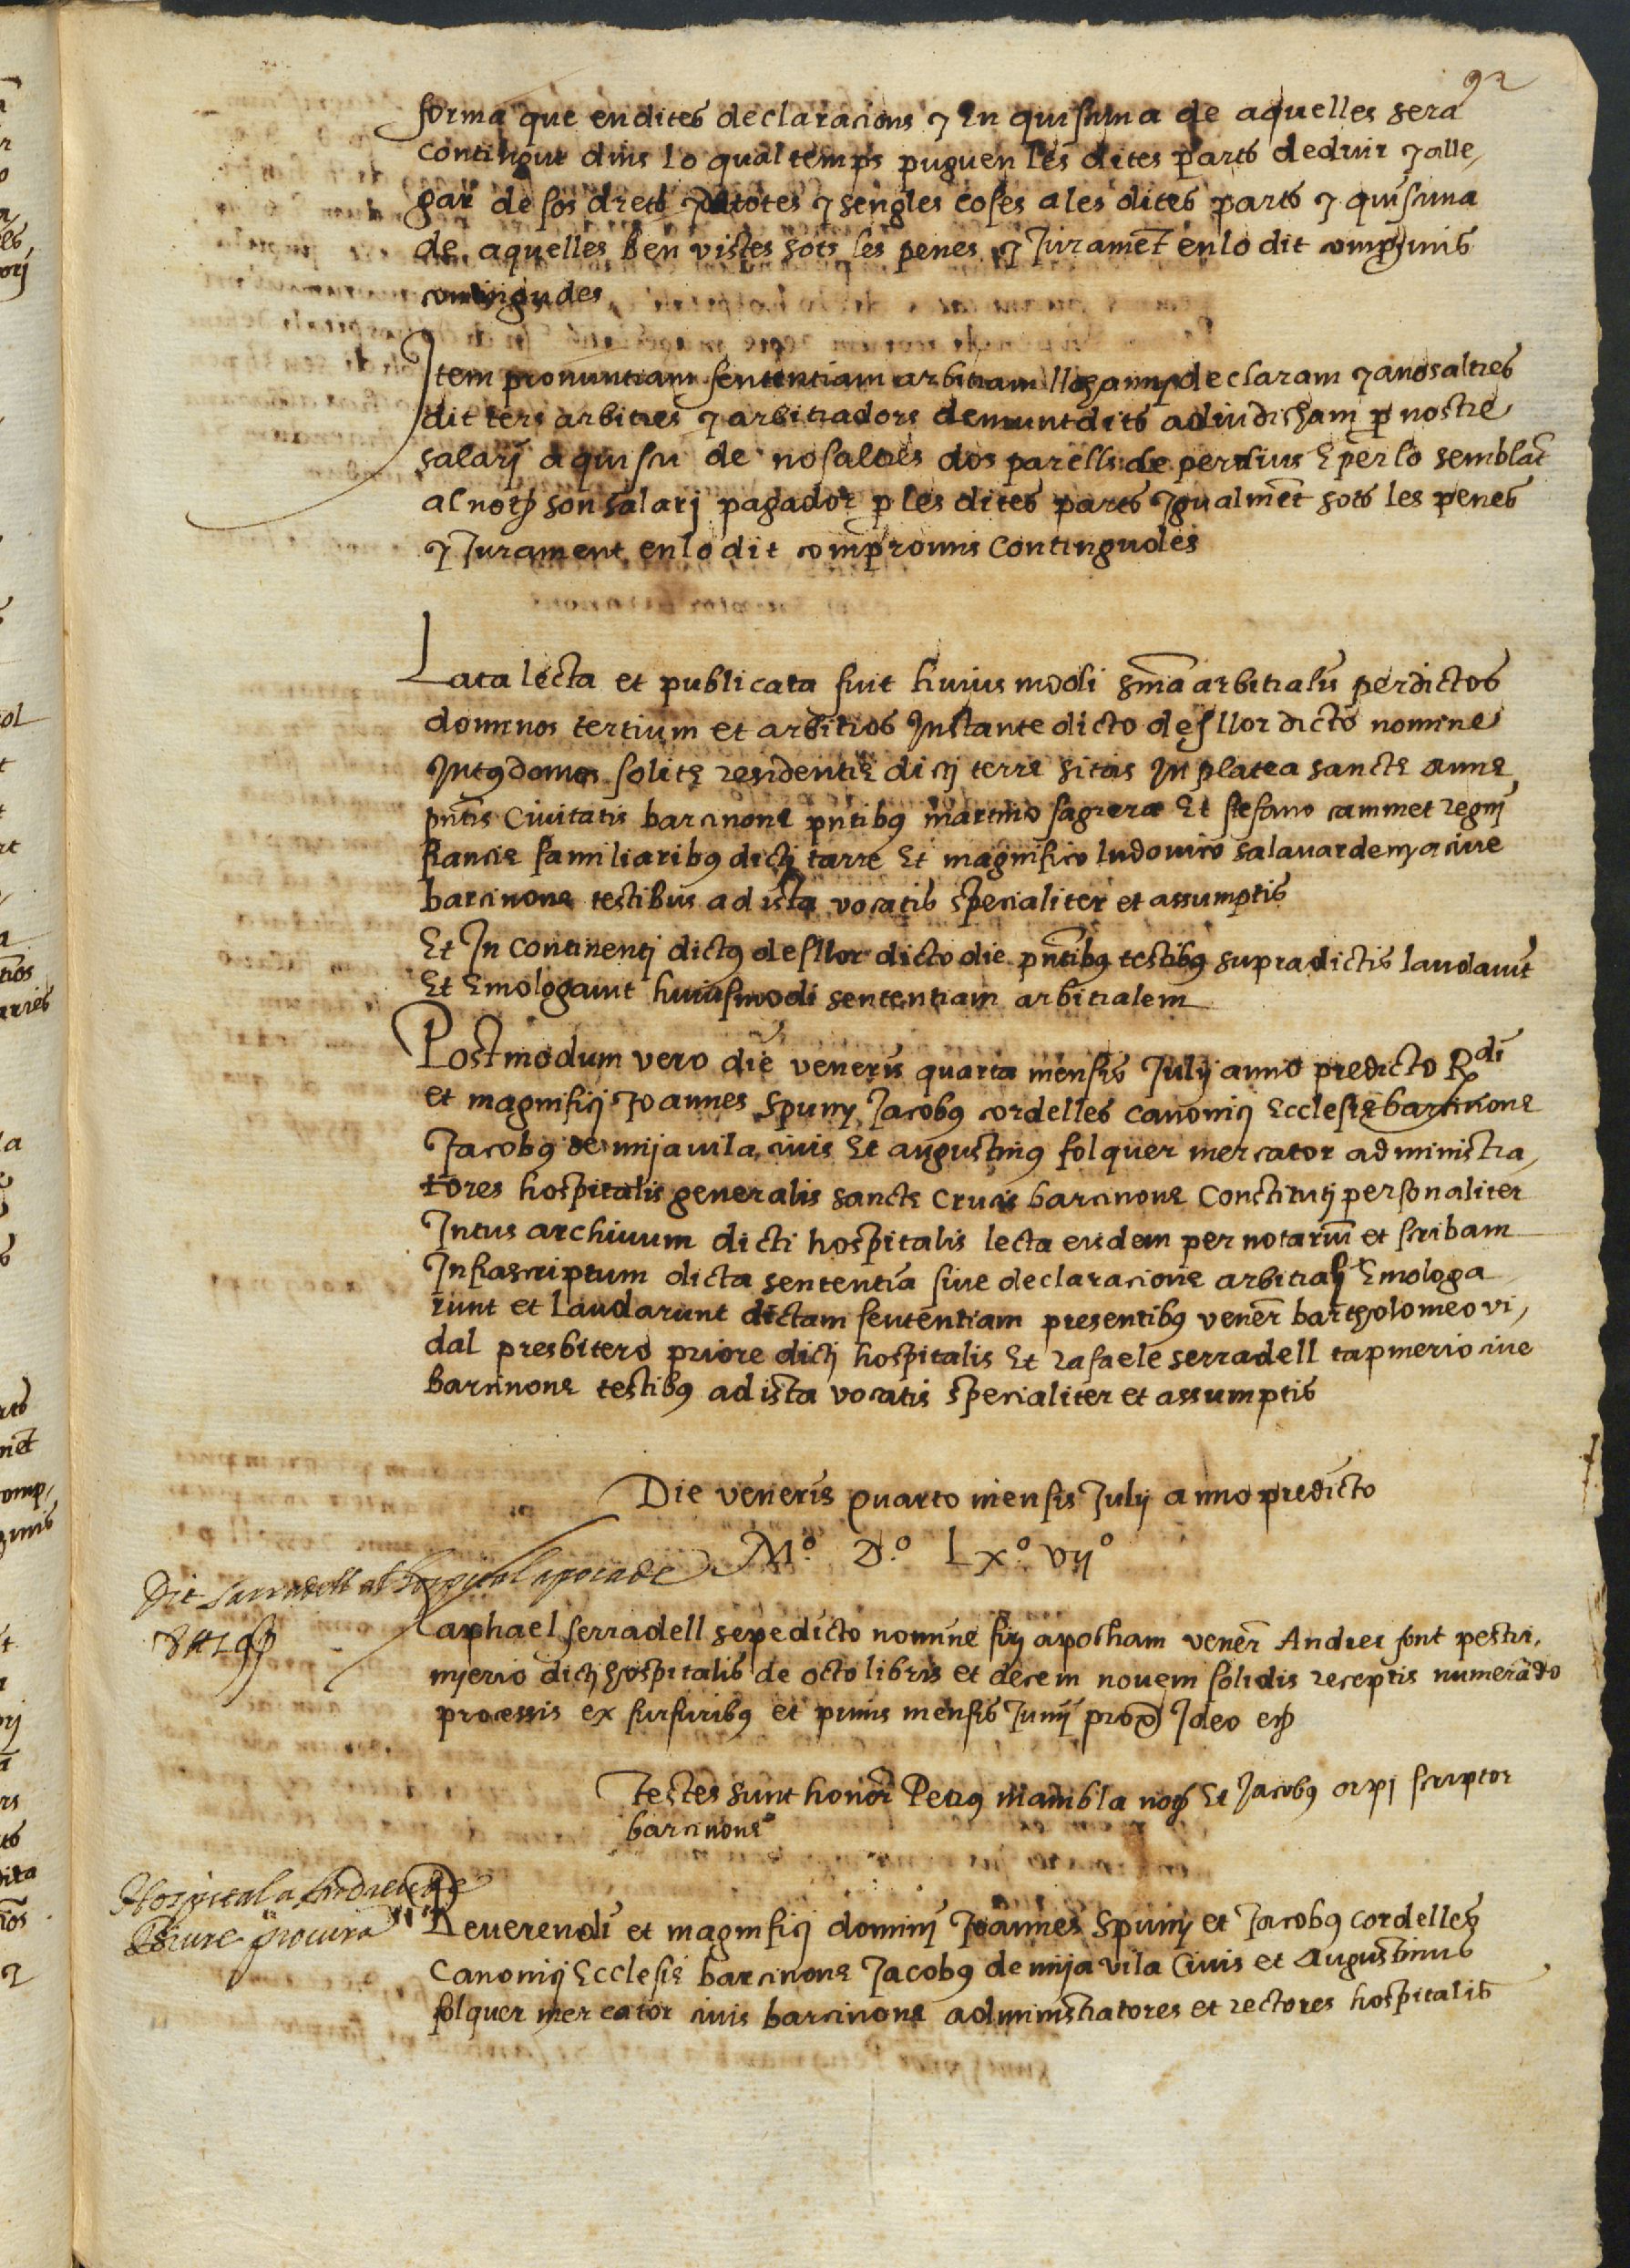 92
forma que en dites declaracions y en quiscuna de aquelles sera
contingut dins lo qual temps puguen les dites parts deduir y alle,
gar de sos drets y de totes y sengles coses a les dites parts y quiscuna
de aquelles ben vistes sots les penes y Jurament en lo dit compromis
contingudes
Item pronuntiam sententiam arbitram lloam y declaram y a nosaltres
dit ters arbitres y arbitradors demunt dits adiudicham p nostre
salari a quiscu de nosaltres dos parells de perdius E per lo semblāt
al not son salari pagador p les dites parts ygualmēt sots les penes
y Jurament en lo dit compromis contingudes
Lata lecta et publicata fuit huiusmodi sñia arbitralis per dictos
dominos tertium et arbitros Instante dicto desllor dicto nomine
Intus domos solite residentie dicti terre sitas In platea sancte anne
pñtis Civitatis barcinone pñtibus martino sagrera Et stefano cammet regni
francie familiaribus dicti tarre Et magnifico ludovico salavardenya cive
barcinone testibus ad ista vocatis specialiter et assumptis
Et In continenti dictus desllor dicto die pñtibus testibus supradictis laudavit
Et Emologavit huiusmodi sententiam arbitralem
Postmodum vero die veneris quarta mensis Julij anno predicto Rdi
et magnifici Joannes Spuny Jacobus cordelles canonici Ecclesie barcinone
Jacobus de mijavila civis Et augustinus folquer mercator administra,
tores hospitalis generalis sancte Crucis barcinone Constituti personaliter
Intus archivum dicti hospitalis lecta eisdem per notariū et scribam
Infrascriptum dicta sententia sive declaracione arbitrali Emologa
runt et Laudarunt dictam sententiam presentibus venēr bartholomeo vi,
dal presbitero priore dicti hospitalis Et rafaele serradell tapinerio cive
barcinone testibus ad ista vocatis specialiter et assumptis
Die veneris quarto mensis Julij anno predicto
Mº Dº Lxº vijº
Dit Sarradell al hospital apoca de
8 ₶ 19 ß
Raphael serradell sepedicto nomine firi apocham venēr Andree font pestri,
nyerio dicti hospitalis de octo libris et decem novem solidis receptis numerādo
processis ex furfuribus et primis mensis Junij prox Ideo etc
Testes sunt honor Petrus mambla not Et Jacobus orpi scriptor
barcinone
Hospital a Andreu
procura
Reverendi et magnifici domini Joannes Spuny et Jacobus cordelles
Canonici Ecclesie barcinone Jacobus de mijavila Civis et Augustinus
folquer mercator civis barcinone administratores et rectores hospitalis